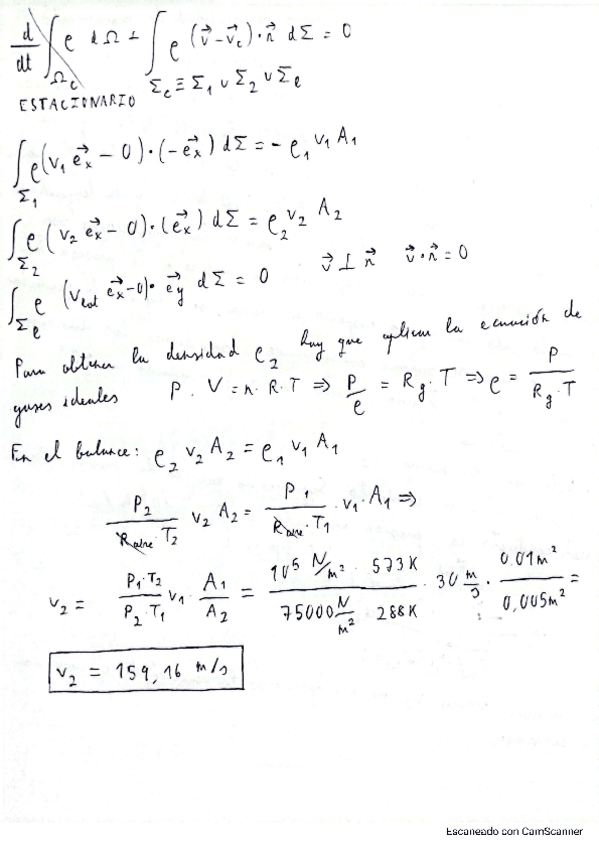 d/dt ∫_Ωc ρ dΩ + ∫_Σc≡Σ1∪Σ2∪Σℓ ρ (v⃗-v⃗c)·n⃗ dΣ = 0
ESTACIONARIO
∫_Σ1 ρ(v1 e⃗x - 0)·(-e⃗x) dΣ = - ρ1 v1 A1
∫_Σ2 ρ(v2 e⃗x - 0)·(e⃗x) dΣ = ρ2 v2 A2
∫_Σℓ ρ (vlat e⃗x-0)· e⃗y dΣ = 0 v⃗ ⊥ n⃗ v⃗·n⃗ = 0
Para obtener la densidad ρ2 hay que aplicar la ecuación de
gases ideales P. V = n. R. T ⇒ P/ρ = Rg. T ⇒ ρ = P/(Rg.T)
En el balance: ρ2 v2 A2 = ρ1 v1 A1
P2/(Raire.T2) v2 A2 = P1/(Raire.T1) · v1. A1 ⇒
v2 = (P1.T2)/(P2.T1) v1 · A1/A2 = (10^5 N/m² · 573K)/(75000 N/m² 288K) · 30 m/s · 0.01m²/0,005m² =
v2 = 159,16 m/s
Escaneado con CamScanner